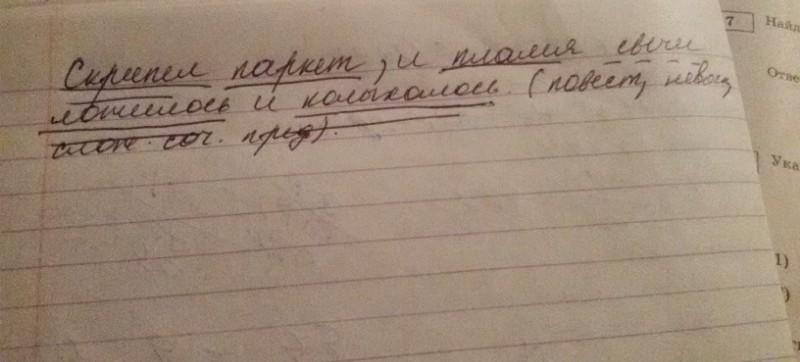 Скрипел паркет, и пламя свечи
ложилось и колыхалось. (повест, невоск,
слож. соч. пред).
7
Найд
Отве
Ука
1)